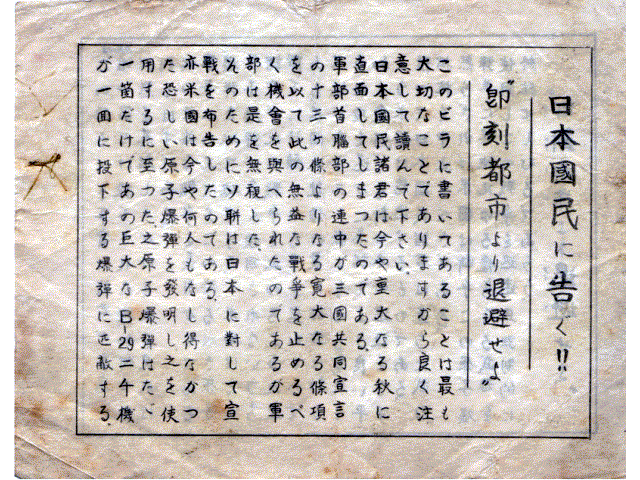 日本國民に告ぐ!!
"即刻都市より退避せよ"
このビラに書いてあることは最も
大切なことでありますから良く注
意して讀んで下さい。
日本國民諸君は今や重大なる秋に
直面してしまつたのである。
軍部首脳部の連中が三國共同宣言
の十三ヶ條よりなる寛大なる條項
を以て此の無益な戰爭を止めるべ
く機會を與へられたのであるが軍
部は是を無視した。
そのためにソ聯は日本に對して宣
戰を布告したのである。
亦米國は今や何人もなし得なかつ
た恐しい原子爆彈を發明し之を使
用するに至つた。之原子爆彈はたゞ
一箇だけであの巨大なB-29二千機
が一回に投下する爆彈に匹敵する。